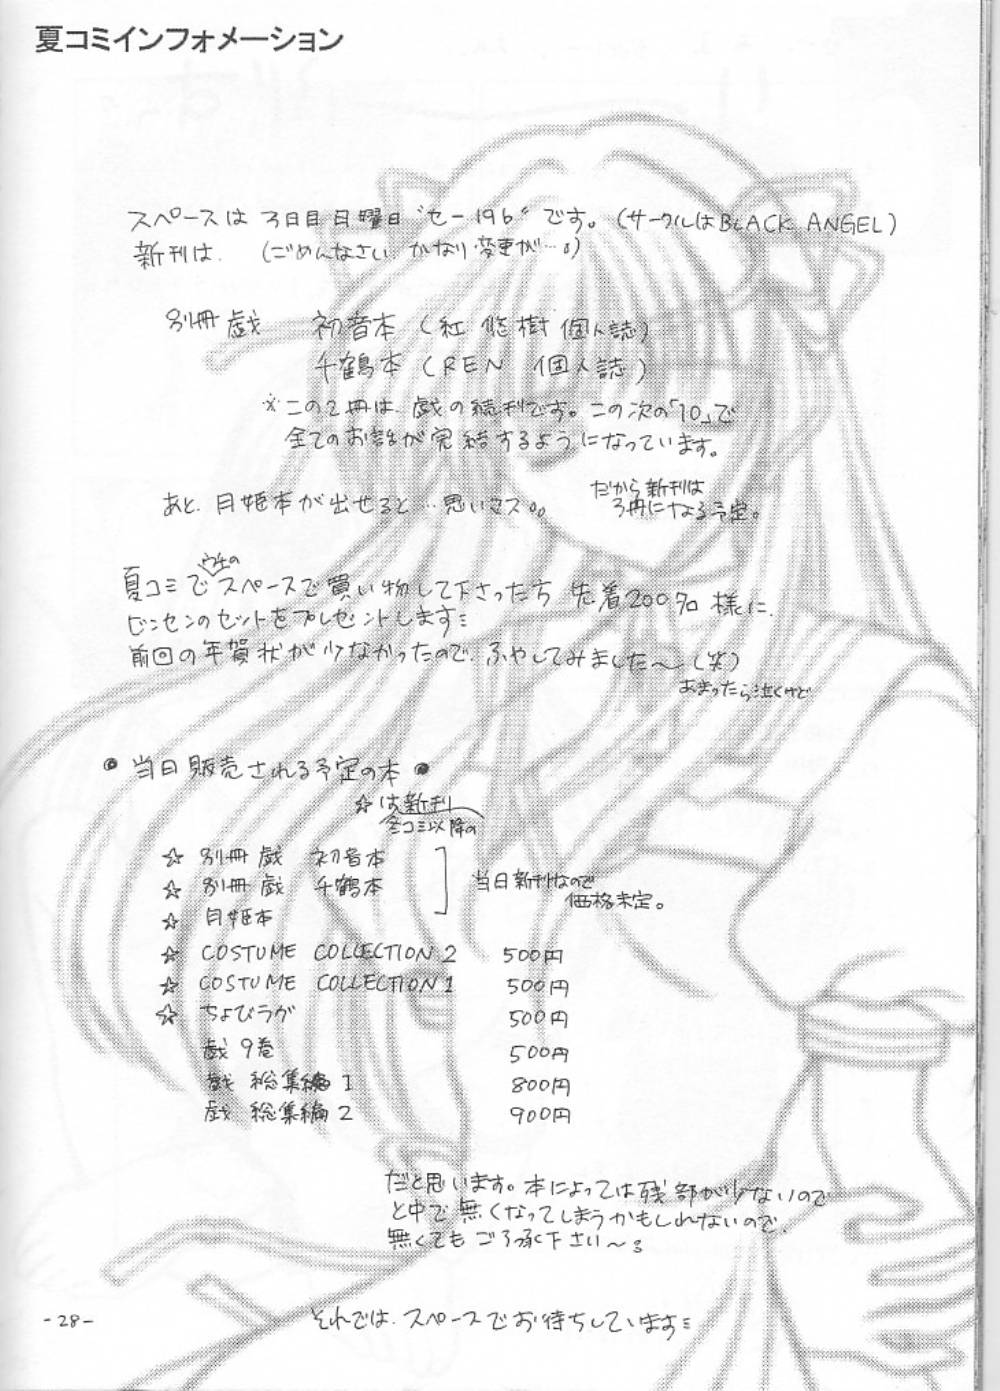 夏コミインフォメーション
スペースは 3日目日曜日 "セ-19b" です。(サークルはBLACK ANGEL)
新刊は、(ごめんなさい かなり変更が…。)
別冊 戯 初音本 (紅 悠樹 個人誌)
千鶴本 (REN 個人誌)
※この2冊は、戯の続刊です。この次の「10」で
全てのお話が完結するようになっています。
あと、月姫本が出せると…思いマス。。
だから新刊は
3冊になる予定。
夏コミでウチのスペースで買い物して下さった方 先着200名様に、
ビンセンのセットをプレゼントします
前回の年賀状が少なかったので、ふやしてみました〜(笑)
あまったら泣くけど
● 当日販売される予定の本 ●
☆は新刊
冬コミ以降の
☆ 別冊 戯 初音本
☆ 別冊 戯 千鶴本
☆ 月姫本
当日新刊なので
価格未定。
☆ COSTUME COLLECTION 2 500円
☆ COSTUME COLLECTION 1 500円
☆ ちょびラグ 500円
戯 9巻 500円
戯 総集編 1 800円
戯 総集編 2 900円
だと思います。本によっては残部が少ないので
と中で無くなってしまうかもしれないので、
無くてもご了承下さい〜。
それでは、スペースでお待ちしています
-28-